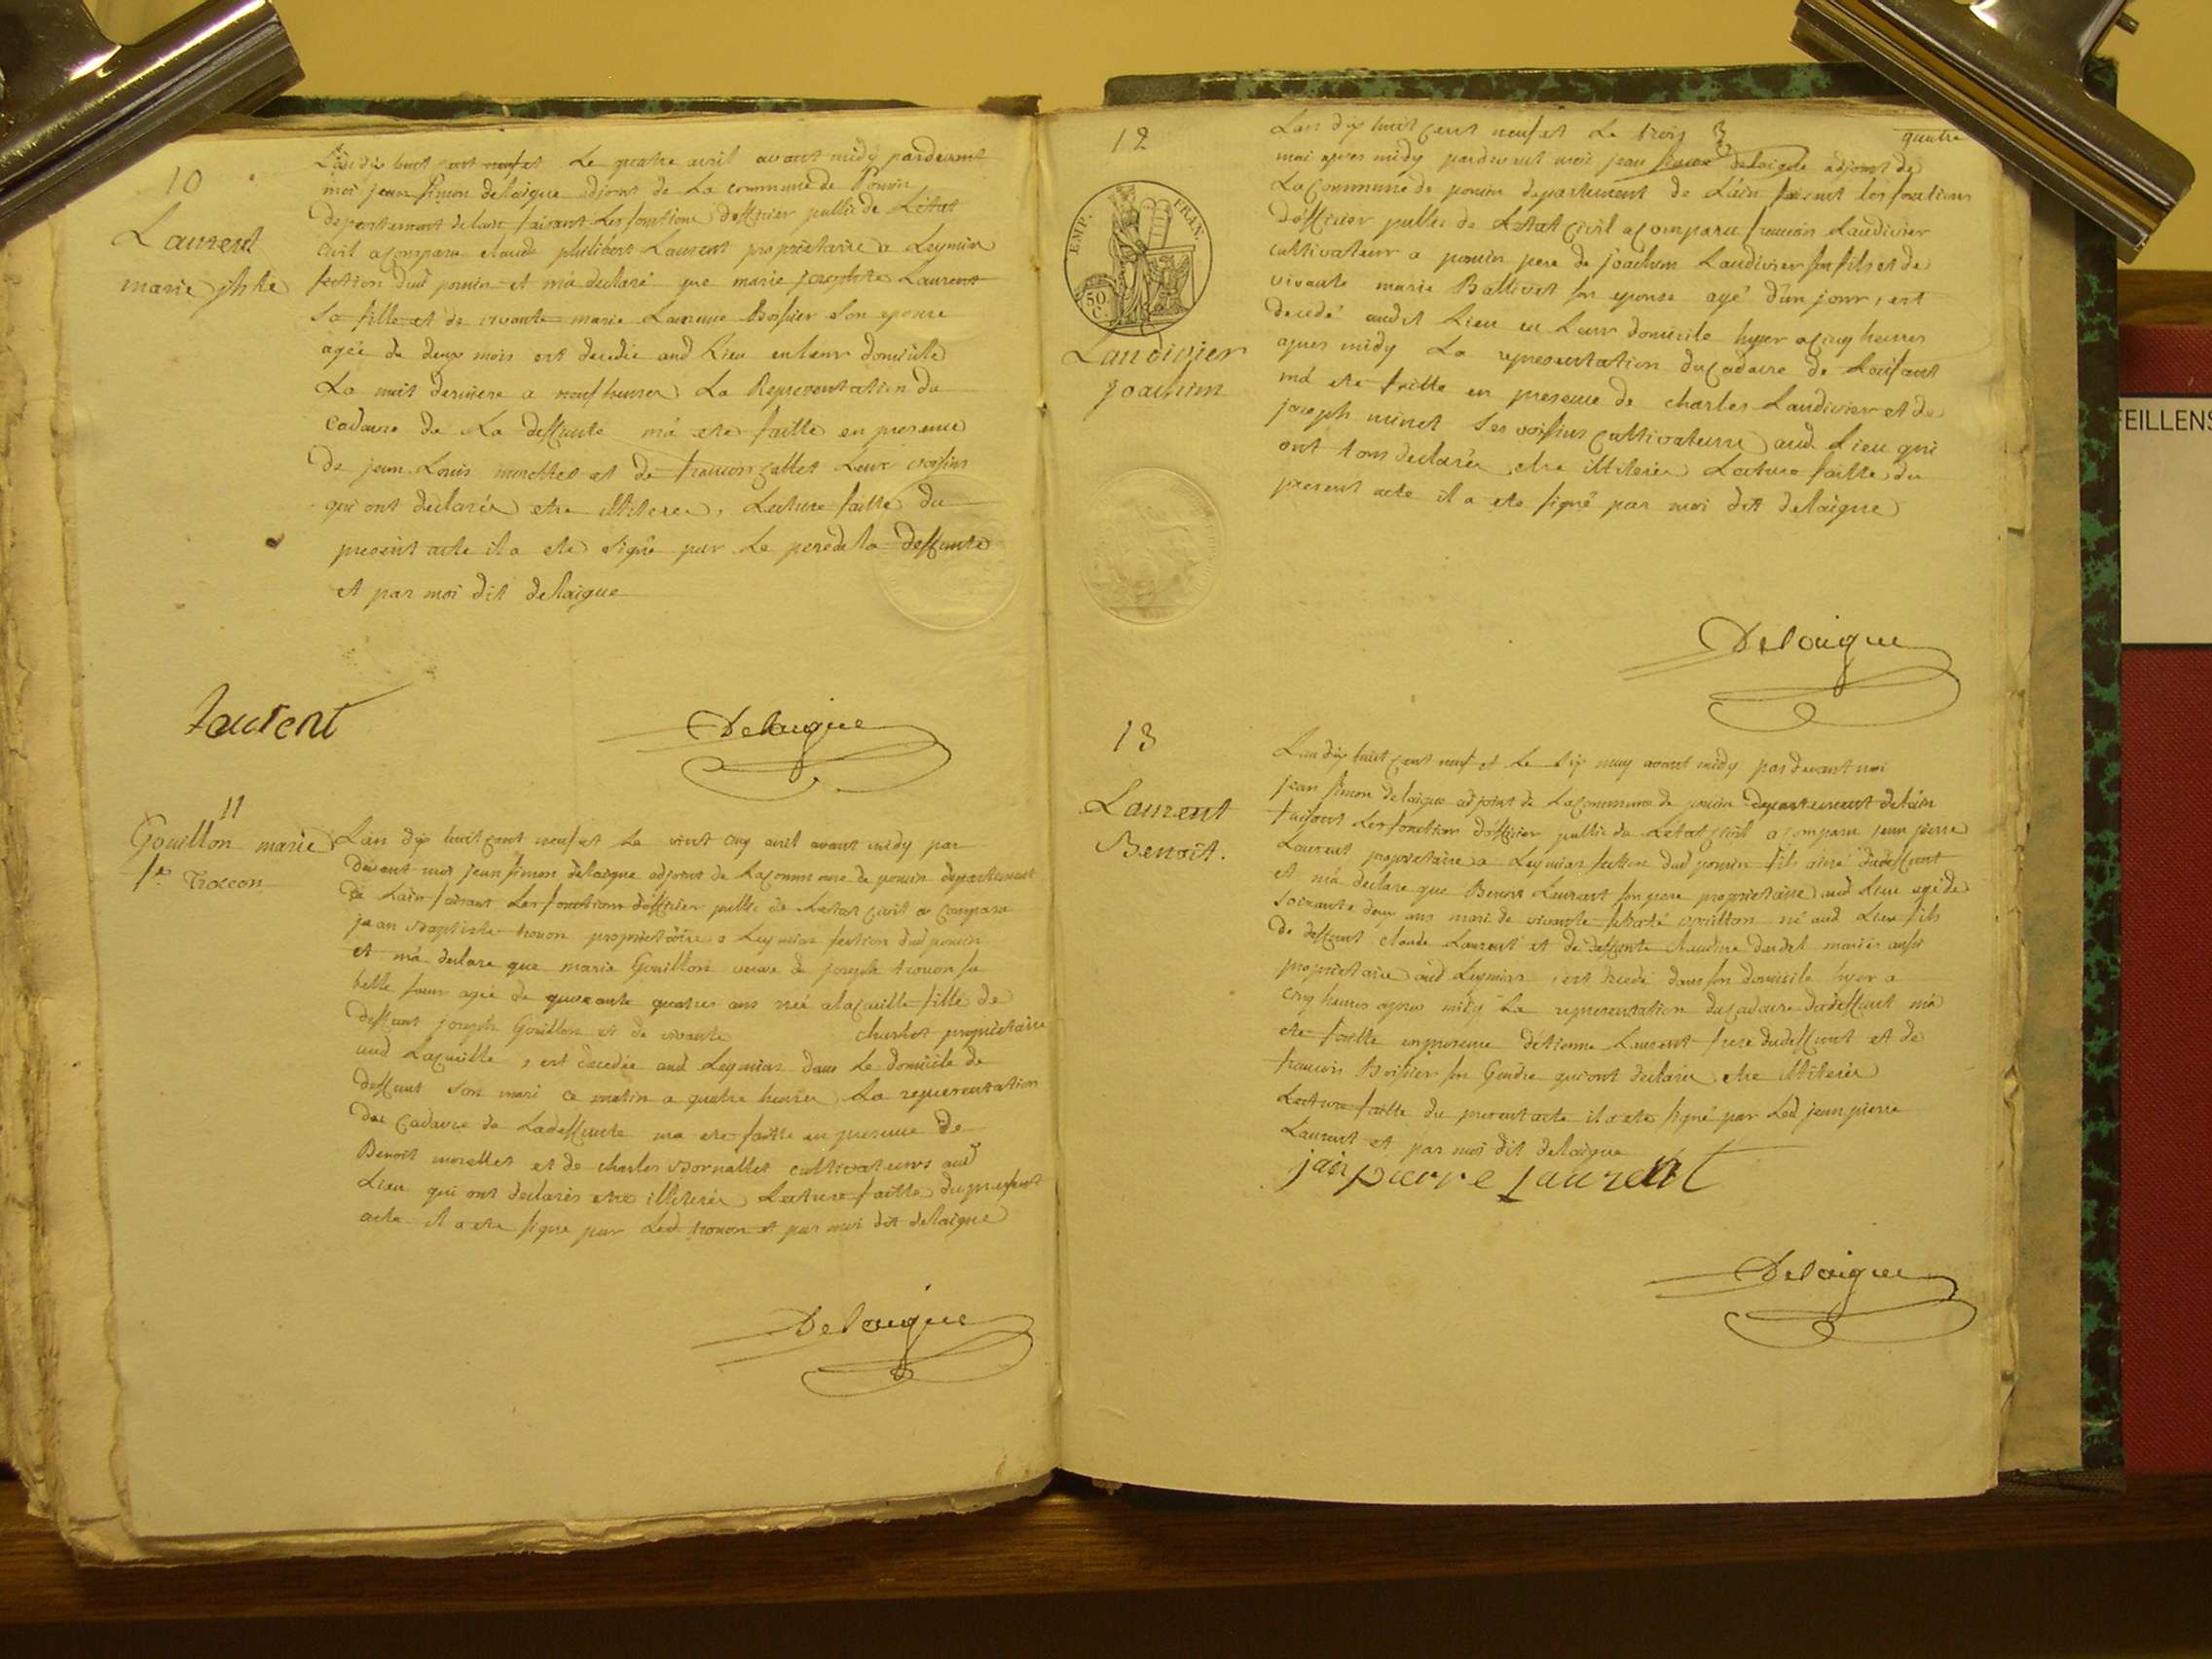 10
Laurent
marie jphte
L'an dix huit cent neuf et le quatre avril avant midy pardevant
moi jean simon delaigue adjoint de la commune de Pouvin
departement de l'ain faisant les fonctions d'officier public de l'état
civil a comparu claude philibert Laurent proprietaire a Leymiar
section dud pouvin et m'a declaré que marie josephte Laurent
sa fille et de vivante marie Laurence Boissier son epouse
agée de deux mois est decedée aud lieu en leur domicile
La nuit derniere a neuf heures La Representation du
Cadavre de La deffunte m'a ete faitte en presence
de jean Louis et de francois gallet Leur voisins
qui ont declarés etre illiterés, Lecture faitte du
present acte il a ete signé par Le pere de la deffunte
et par moi dit delaigue
Laurent
Delaigue
11
Gouillon marie
fe trocon
L'an dix huit cent neuf et le vint cinq avril avant midy par
devant moi jean simon delaigue adjoint de la commune de pouvin departement
de Lain faisant Les fonctions d'officier public de Letat civil a comparu
jean Baptiste trocon proprietaire a Leymiar section dud pouvin
et m'a declare que marie Gouillon veuve de joseph trocon sa
belle soeur agée de quarante quatres ans née a fille de
deffunt joseph Gouillon et de vivante charlet proprietaire
aud , est decedée aud Leymiar dans Le domicile de
deffunt son mari ce matin a quatre heures La representation
du Cadavre de Ladeffunte ma ete faitte en presence de
Benoit morellet et de charles Bornallet cultivateurs aud
Lieu qui ont declarés etre illiterés Lecture faitte du present
acte il a ete signe par Led trocon et par moi dit delaigue
Delaigue
quatre
12
EMP. FRAN.
50 C.
Landivier
joachim
L'an dix huit cent neuf et Le trois
mai apres midy pardevant moi jean simon delaigue adjoint de
La Commune de pouvin departement de L'ain faisant les fonctions
d'officier public de Letat Civil a comparu francois Laudivier
cultivateur a pouvin pere de joachim Laudivier son fils et de
vivante marie Ballivet son epouse agé d'un jour, est
decedé audit Lieu en Leur domicile hyer a cinq heures
apres midy La representation du Cadavre de Lenfant
m'a ete faitte en presence de charles Laudivier et de
joseph minet Ses voisins cultivateurs aud. Lieu qui
ont tous declarés etre illiterés Lecture faitte du
present acte il a ete signé par moi dit delaigue
Delaigue
13
Laurent
Benoit.
L'an dix huit cent neuf et Le may avant midy pardevant moi
jean simon delaigue adjoint de La commune de pouvin departement de Lain
faisant Les fonction d'officier public de Letat civil a comparu jean pierre
Laurent proprietaire a Leymiar section dud pouvin fils ainé dudeffunt
et m'a declare que Benoit Laurent son pere proprietaire aud Lieu agé de
soixante deux ans mari de vivante gouillon né aud Lieu fils
de deffunt claude Laurent et de deffunte mariés aussi
proprietaire aud Leymiar, est decedé dans son domicile hyer a
cinq heures apres midy La representation du Cadavre dudeffunt m'a
ete faitte en presence d'étienne Laurent frere dudeffunt et de
francois Boissier son Gendre qui ont declarés etre illiterés
Lecture faitte du present acte il a ete signé par Led jean pierre
Laurent et par moi dit delaigue
jan pierre Laurent
Delaigue
FEILLENS